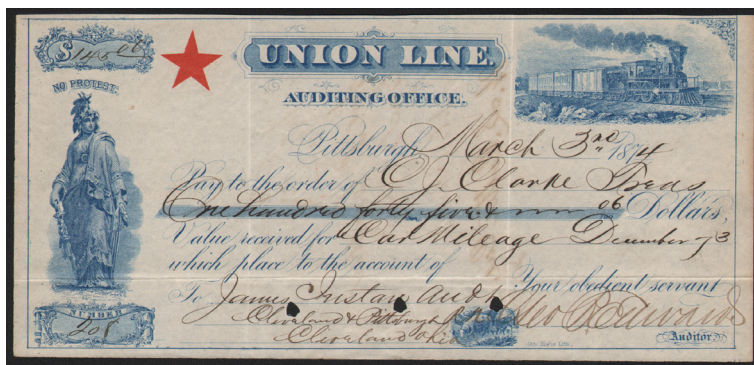 $145 06
UNION LINE.
NO PROTEST.
AUDITING OFFICE.
Pittsburgh, March 3rd 1874
Pay to the order of E. J. Clarke Treas
One hundred forty five & 06 Dollars,
Value received for Car Mileage December 73
which place to the account of
Your obedient servant
To James Auditor Geo B Edwards
Cleveland & Pittsburgh R.R.
Cleveland Ohio
NUMBER
208
Auditor